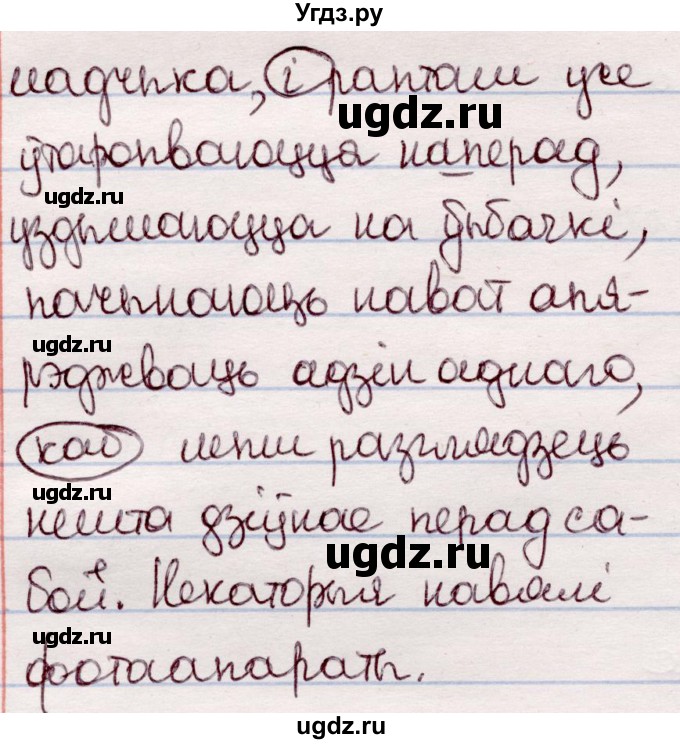 Угдз.ру
падчпка, і раптам уже
ugdz.ru
ўтаропваюцца наперад,
ugdz.ru
уздымаюцца на дыбачкі,
пачынаюць нават апя-
ugdz.ru
рэджваць адзін аднаго,
каб лепш разгледзець
ugdz.ru
нешта дзіўнае перад са-
ugdz.ru
бой. Некаторыя навялі
ugdz.ru
фотаапараты.
ugdz.ru